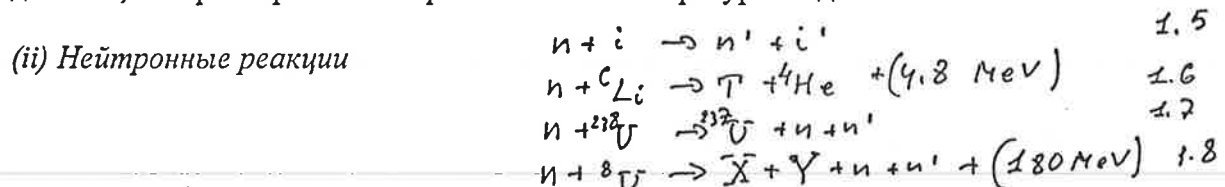 (ii) Нейтронные реакции
n + i → n' + i' 1.5
n + ⁶Li → T + ⁴He + (4,8 MeV) 1.6
n + ²³⁸U → ²³⁷U + n + n' 1.7
n + ⁸U → X + Y + n + n' + (180 MeV) 1.8